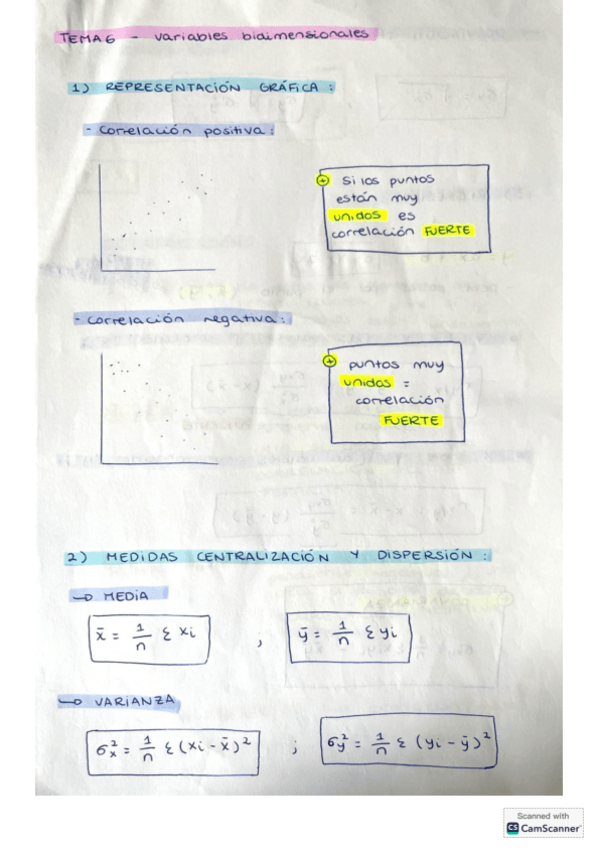 TEMA 6 - variables bidimensionales
1) REPRESENTACIÓN GRÁFICA :
- Correlación positiva :
Si los puntos
están muy
unidos es
correlación FUERTE
- correlación negativa :
puntos muy
unidos =
correlación
FUERTE
2) MEDIDAS CENTRALIZACIÓN Y DISPERSIÓN :
→ MEDIA
x̄ = 1/n Σ xi ; ȳ = 1/n Σ yi
→ VARIANZA
σ²x = 1/n Σ (xi - x̄)² ; σ²y = 1/n Σ (yi - ȳ)²
Scanned with
CS CamScanner